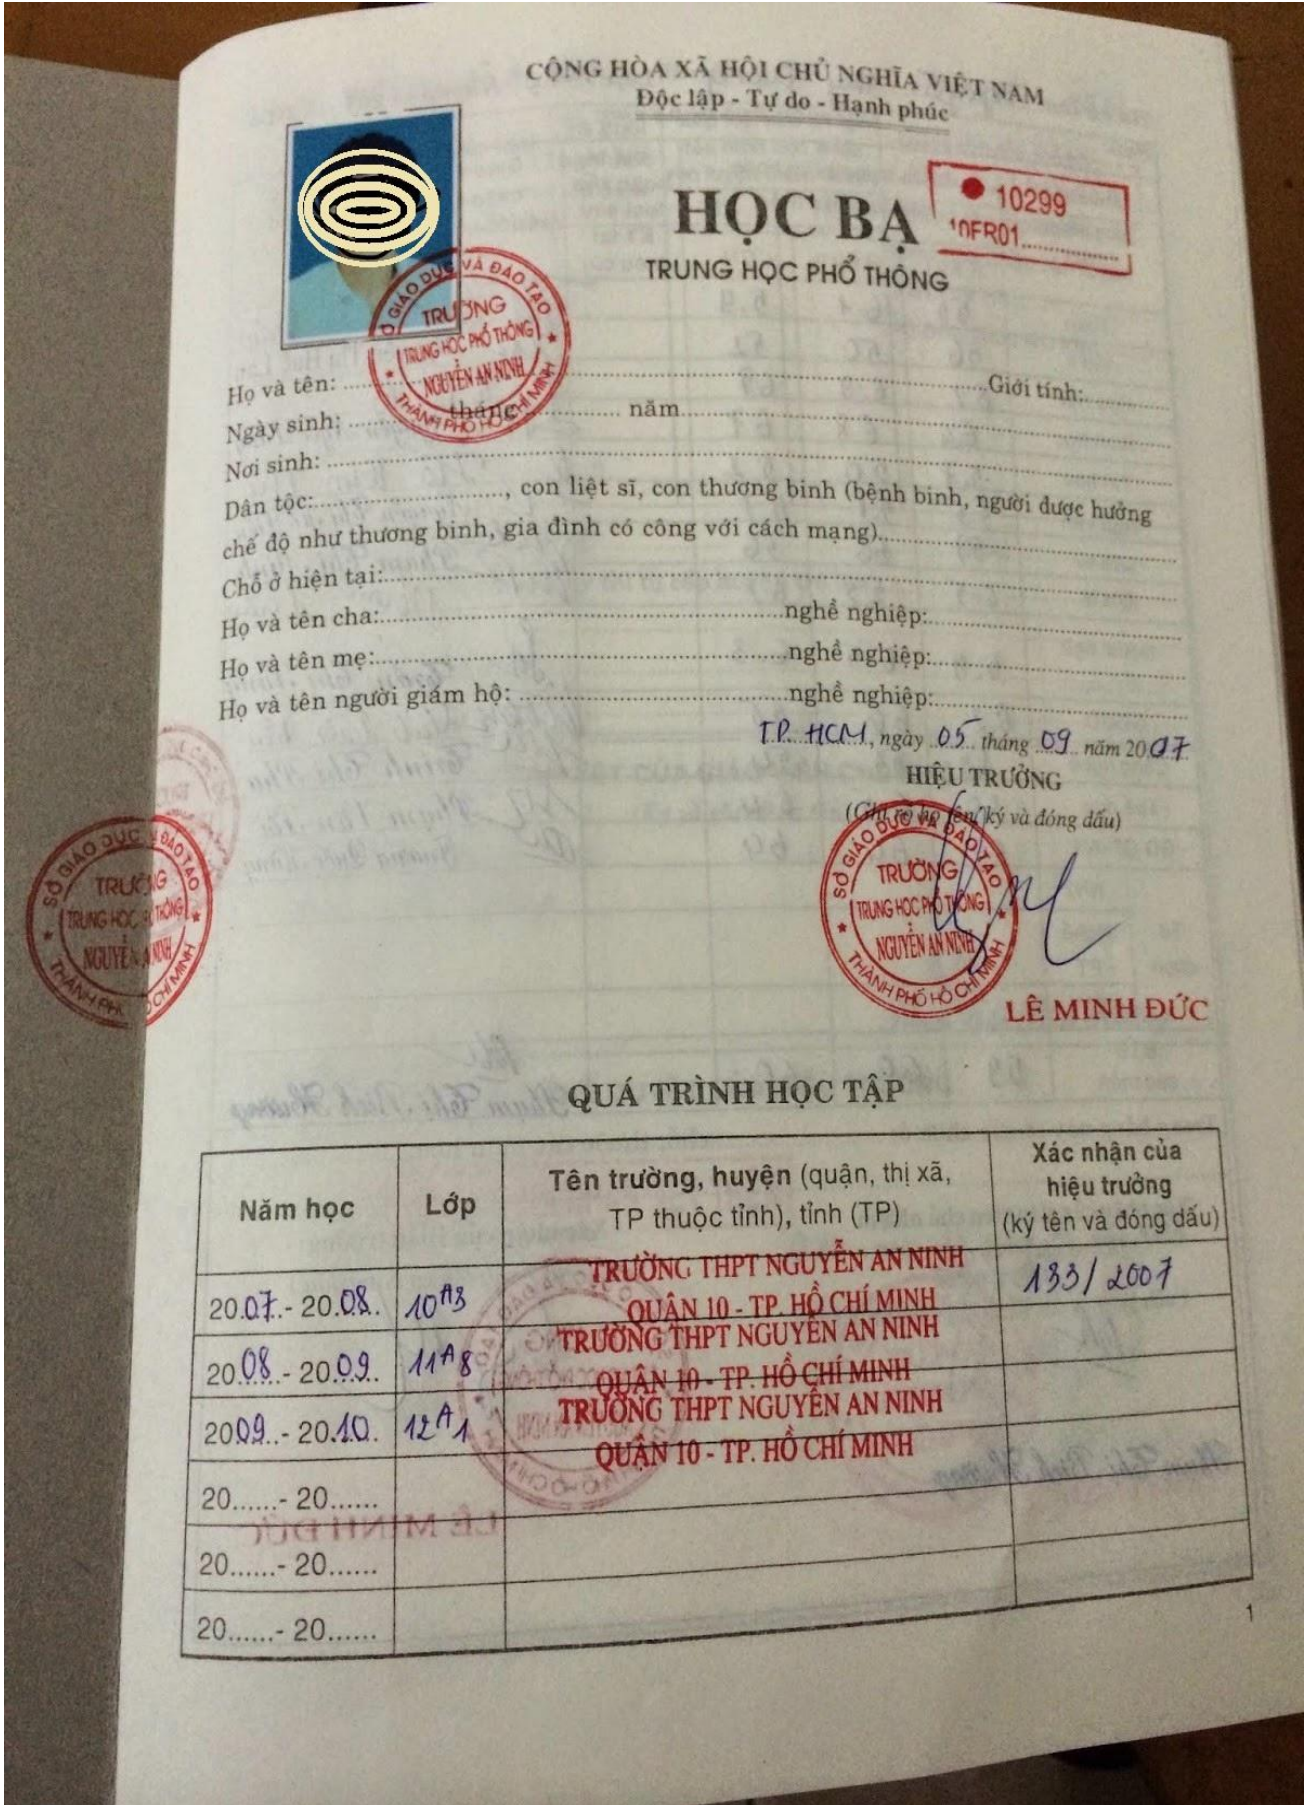 CỘNG HÒA XÃ HỘI CHỦ NGHĨA VIỆT NAM
Độc lập - Tự do - Hạnh phúc
HỌC BẠ
TRUNG HỌC PHỔ THÔNG
10299
10FR01..............
SỞ GIÁO DỤC VÀ ĐÀO TẠO
TRƯỜNG
TRUNG HỌC PHỔ THÔNG
NGUYỄN AN NINH
THÀNH PHỐ HỒ CHÍ MINH
Họ và tên: ........................Giới tính:............
Ngày sinh: ............ tháng ............ năm............
Nơi sinh: ............
Dân tộc:............, con liệt sĩ, con thương binh (bệnh binh, người được hưởng
chế độ như thương binh, gia đình có công với cách mạng)............
Chỗ ở hiện tại:............
Họ và tên cha:............nghề nghiệp:............
Họ và tên mẹ:............nghề nghiệp:............
Họ và tên người giám hộ: ............nghề nghiệp:............
T.P. HCM, ngày 05 tháng 09 năm 2007
HIỆU TRƯỞNG
(Ghi rõ họ tên, ký và đóng dấu)
SỞ GIÁO DỤC VÀ ĐÀO TẠO
TRƯỜNG
TRUNG HỌC PHỔ THÔNG
NGUYỄN AN NINH
THÀNH PHỐ HỒ CHÍ MINH
SỞ GIÁO DỤC VÀ ĐÀO TẠO
TRƯỜNG
TRUNG HỌC PHỔ THÔNG
NGUYỄN AN NINH
THÀNH PHỐ HỒ CHÍ MINH
LÊ MINH ĐỨC
QUÁ TRÌNH HỌC TẬP
Năm học Lớp Tên trường, huyện (quận, thị xã, TP thuộc tỉnh), tỉnh (TP) Xác nhận của hiệu trưởng (ký tên và đóng dấu)
2007 - 2008 10A3 TRƯỜNG THPT NGUYỄN AN NINH 133/2007
QUẬN 10 - TP. HỒ CHÍ MINH
2008 - 2009 11A8 TRƯỜNG THPT NGUYỄN AN NINH
QUẬN 10 - TP. HỒ CHÍ MINH
2009 - 2010 12A1 TRƯỜNG THPT NGUYỄN AN NINH
QUẬN 10 - TP. HỒ CHÍ MINH
20......- 20......
20......- 20......
20......- 20......
1